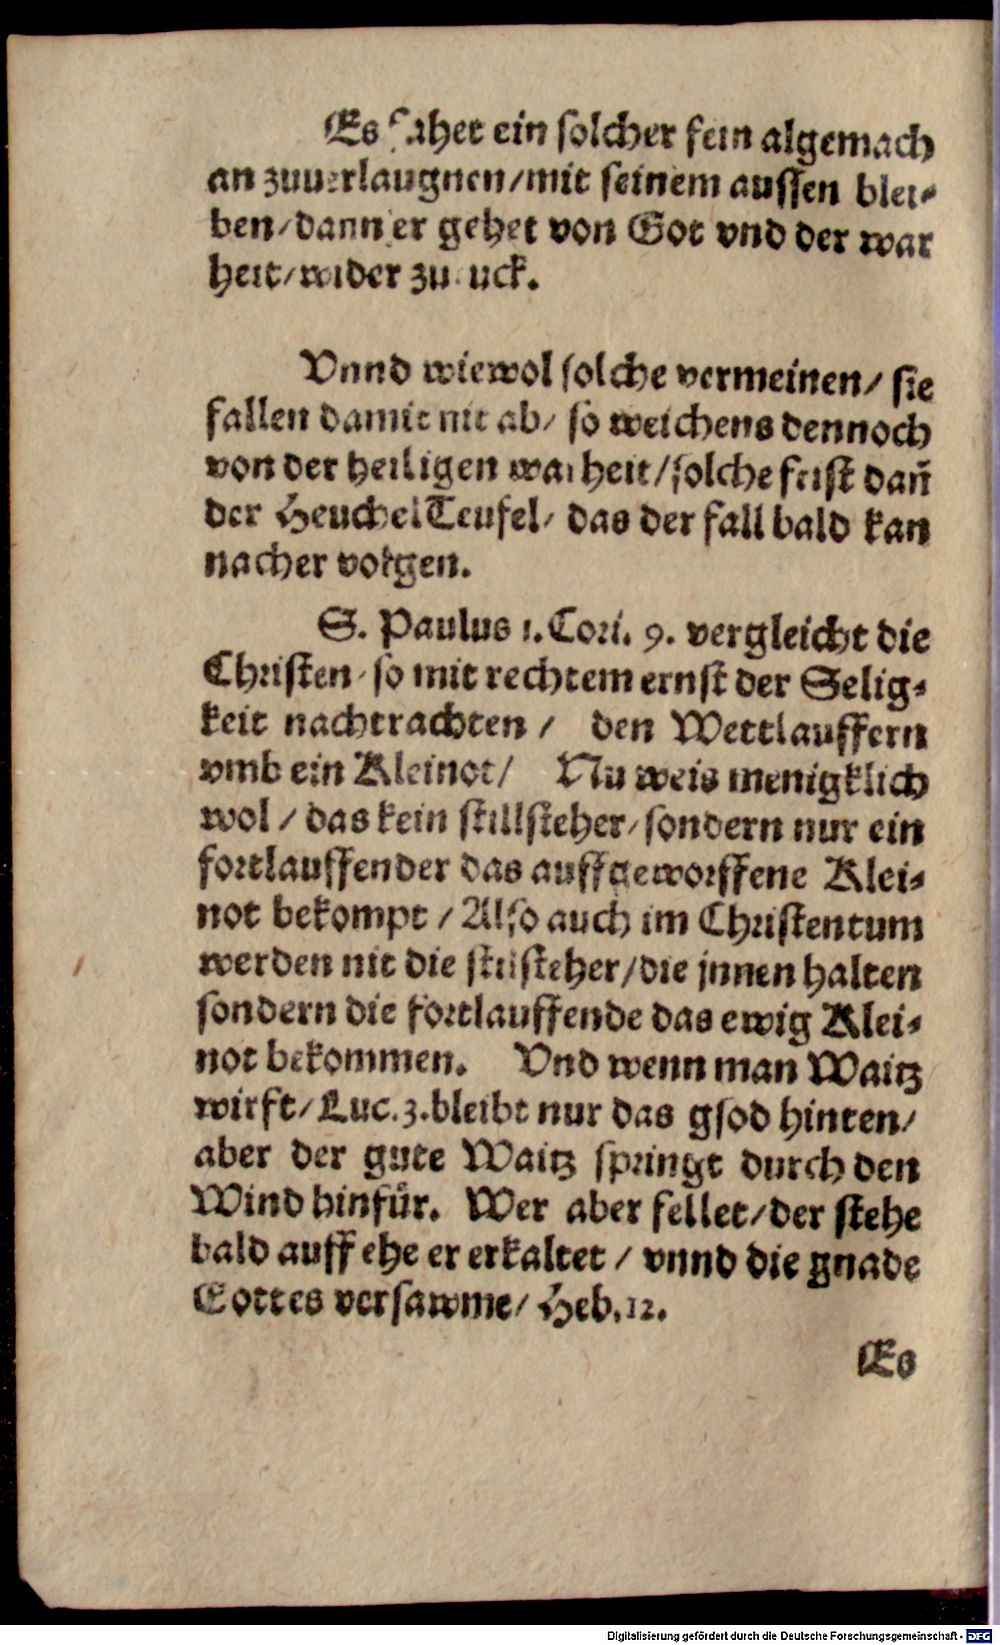 Es fahet ein solcher fein algemach
an zuuerlaugnen/mit seinem aussen blei⸗
ben/dann er gehet von Got vnd der war
heit/wider zu ruck.
Vnnd wiewol solche vermeinen/ sie
fallen damit nit ab/ so weichens dennoch
von der heiligen warheit/solche frist dañ
der HeuchelTeufel/ das der fall bald kan
nacher volgen.
S. Paulus 1. Cori. 9. vergleicht die
Christen/so mit rechtem ernst der Selig⸗
keit nachtrachten / den Wettlauffern
vmb ein Kleinot/ Nu weis menigklich
wol / das kein stillsteher/sondern nur ein
fortlauffender das auffgeworffene Klei⸗
not bekompt / Also auch im Christentum
werden nit die stilsteher/die jnnen halten
sondern die fortlauffende das ewig Klei⸗
not bekommen. Vnd wenn man Waitz
wirft/Luc.3.bleibt nur das gsod hinten/
aber der gute Waitz springt durch den
Wind hinfür. Wer aber fellet/der stehe
bald auff ehe er erkaltet / vnnd die gnade
Gottes versawme/ Heb.12.
Es
Digitalisierung gefördert durch die Deutsche Forschungsgemeinschaft - DFG